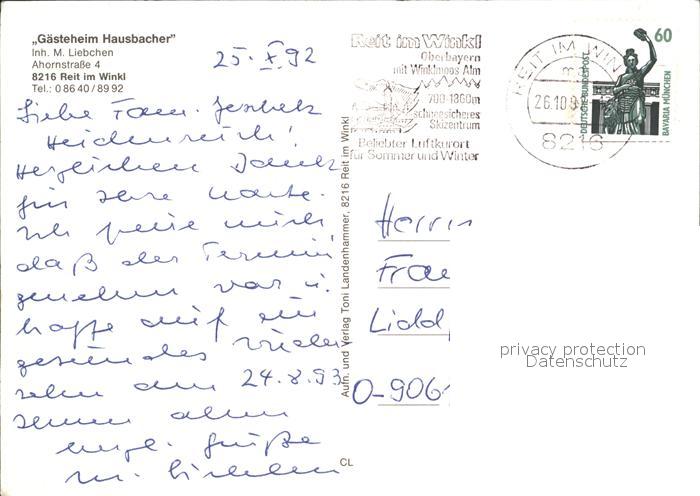 „Gästeheim Hausbacher"
Inh. M. Liebchen
Ahornstraße 4
8216 Reit im Winkl
Tel.: 0 86 40 / 89 92
25. X. 92
Liebe Fam.
Heidenreich!
Herzlichen Dank
für Ihre Karte.
Ich freue mich
daß der Termin
genehm war u.
hoffe auf ein
gesundes Wieder-
sehn am 24.8.93
Ihnen allen
liebe Grüße
M. Liebchen
Reit im Winkl
Oberbayern
mit Winklmoos Alm
700-1860m
schneesicheres
Skizentrum
Beliebter Luftkurort
für Sommer und Winter
REIT IM WIN
26.10.9
8216
60
DEUTSCHE BUNDESPOST
BAVARIA MÜNCHEN
Aufn. und Verlag Toni Landenhammer, 8216 Reit im Winkl
Herrn
Frau
O-906
privacy protection
Datenschutz
CL